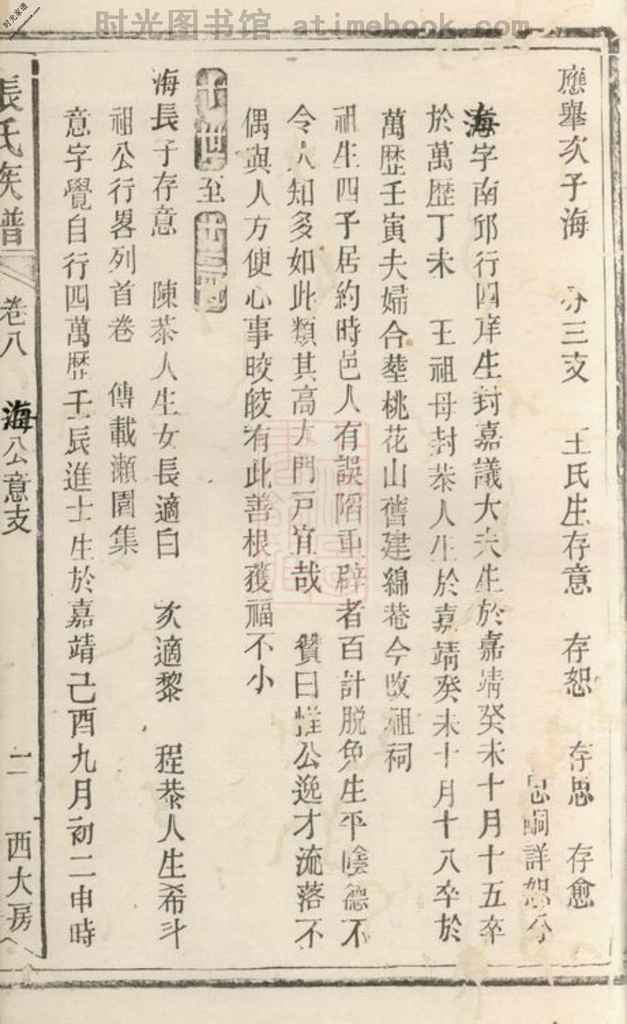 时光图书馆 atimebook.com
時光家譜
應舉次子海 分三支 王氏生存意 存恕 存思 存愈
思嗣詳恕分
海字南邱行四庠生封嘉議大夫生於嘉靖癸未十月十五卒
於萬歷丁未 王祖母封恭人生於嘉靖癸未十月十八卒於
萬歷壬寅夫婦合塟桃花山舊建綿菴今改祖祠
祖生四子居約時邑人有誤陷重辟者百計脫免生平陰德不
令人知多如此類其高大門戸宜哉 贊曰惟公逸才流落不
偶與人方便心事皎皎有此善根獲福不小
至
海長子存意 陳恭人生女長適白 次適黎 程恭人生希斗
祖公行畧列首卷 傳載瀨園集
意字覺自行四萬歷壬辰進士生於嘉靖己酉九月初二申時
張氏族譜 卷八 海公意支 二 西大房